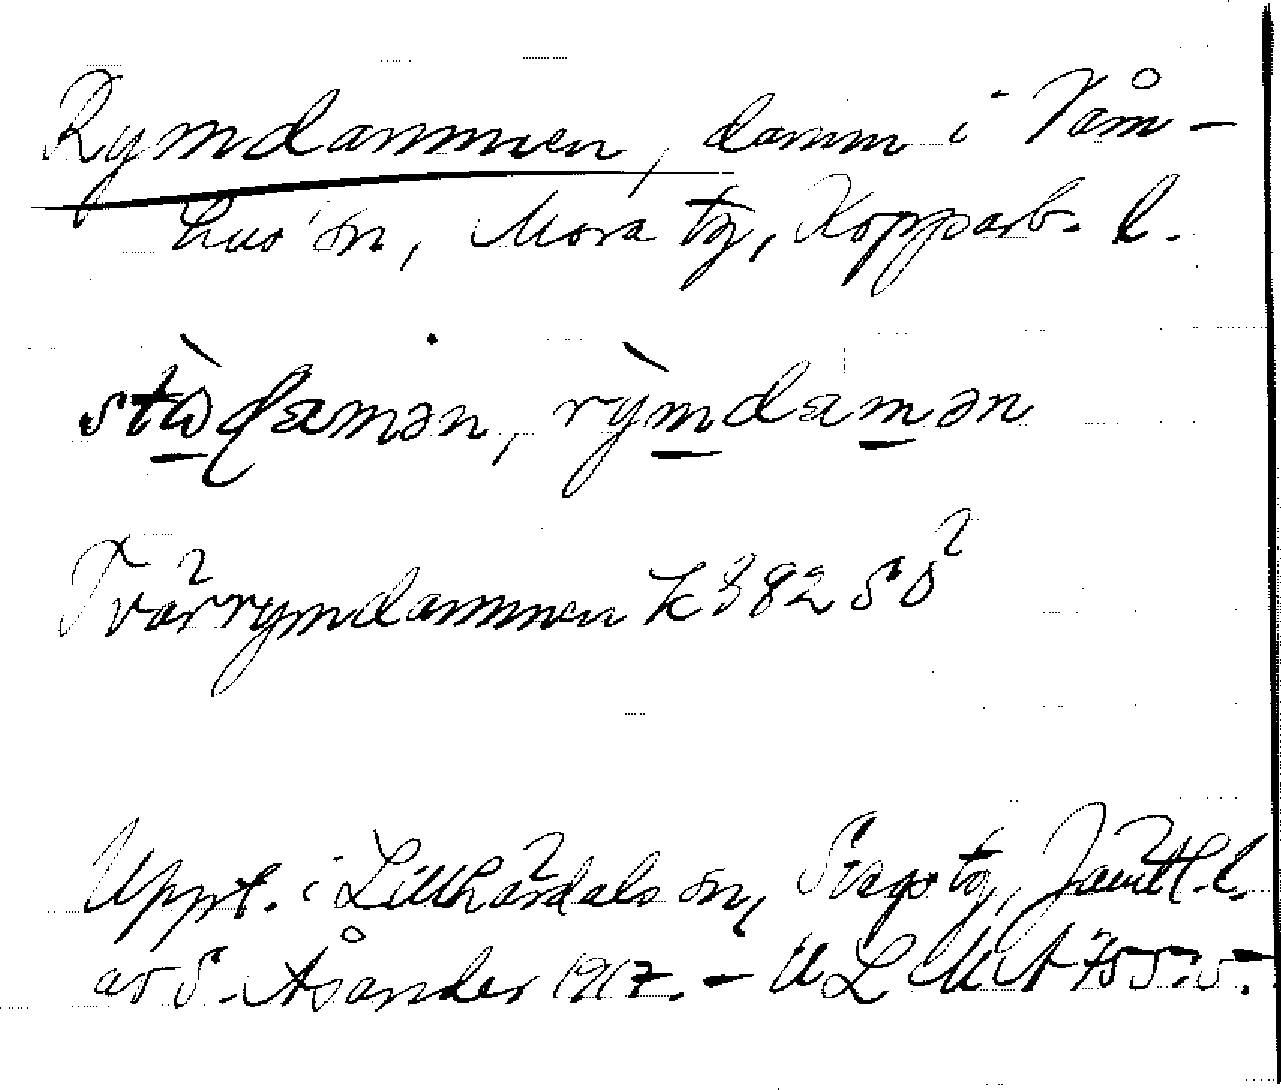 Rymdammen, damm i Våm-
hus sn, Mora tg, Kopparb. l.
rỳmdamən
Tvärrymdammen K 382 SÖ
Uppt. i Lillhärdals sn, Svegs tg, Jämtl. l.
av S. Åsander 1917. - ULMA 755:5.